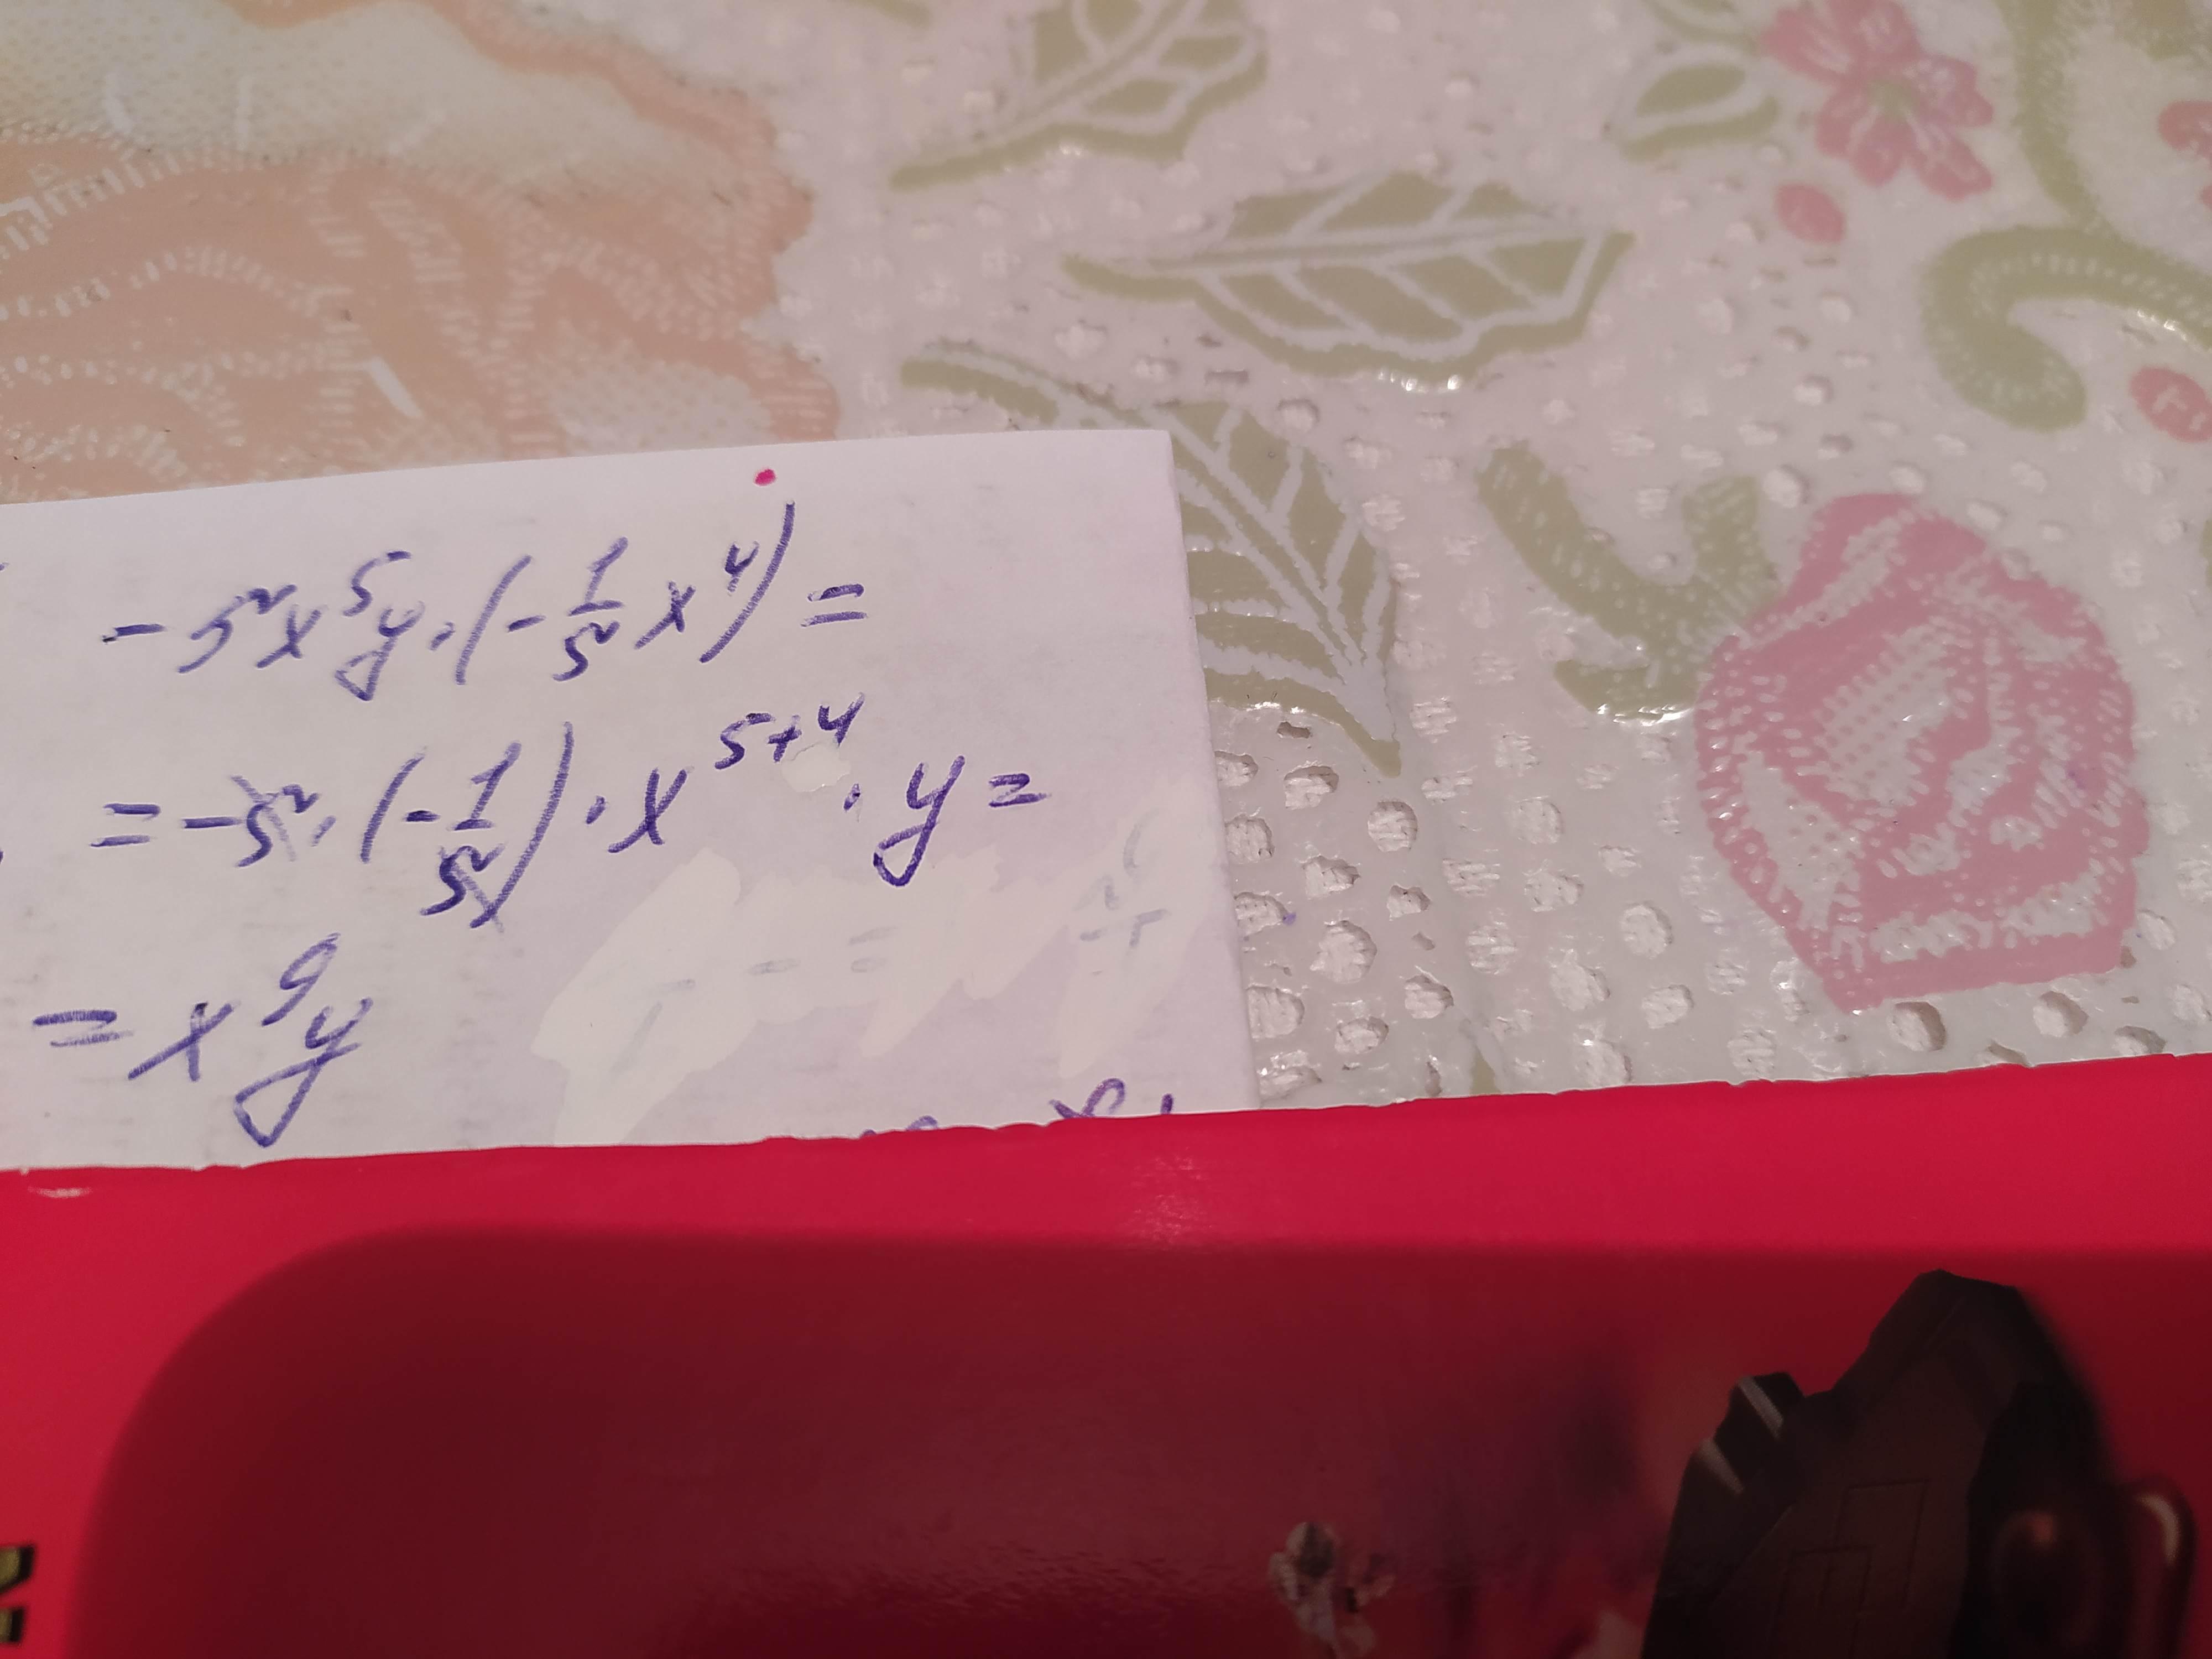 - 5²x⁵y · (- 1/5² x⁴) =
= - 5² · (- 1/5²) · x⁵⁺⁴ · y =
= x⁹y